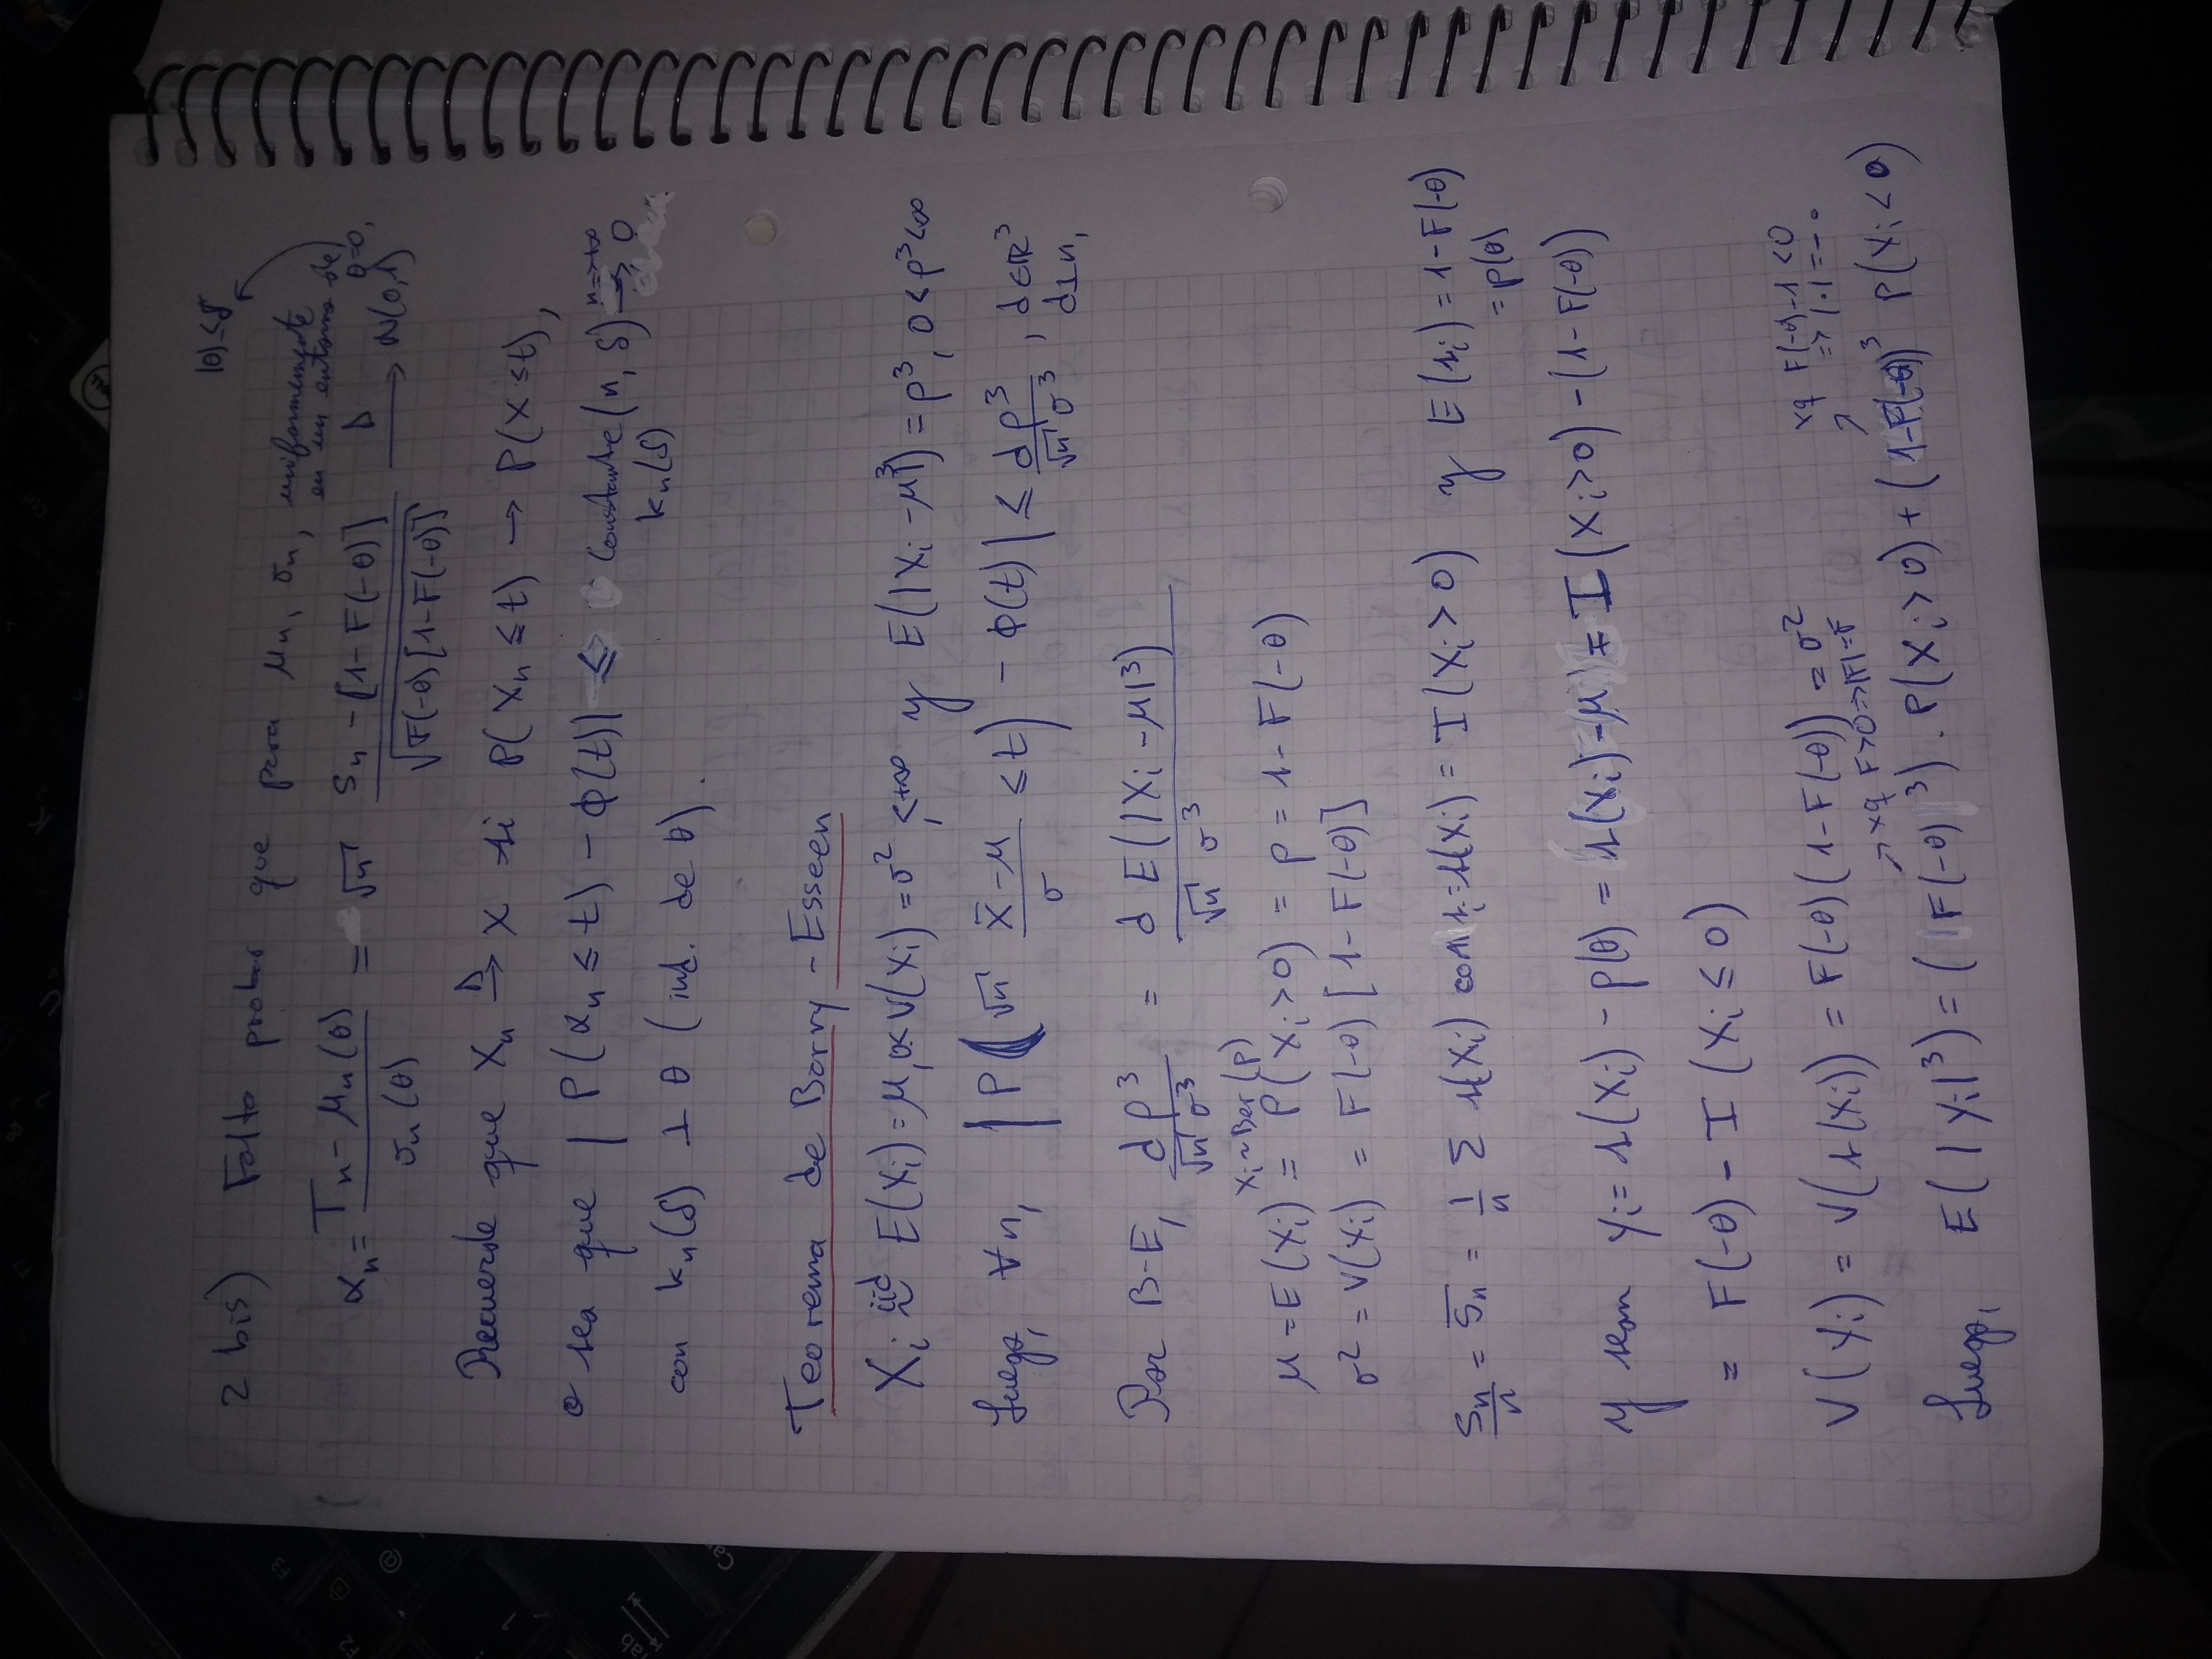 2 bis) Falta probar que para μn, σn, uniformemente en un entorno de θ=0, |θ|≤δ
αn = (Tn - μn(θ)) / σn(θ) = √n (Sn - [1-F(-θ)]) / √(F(-θ)[1-F(-θ)]) →D N(0,1)
Recuerde que Xn →D X si P(Xn ≤ t) → P(X ≤ t),
o sea que |P(αn ≤ t) - Φ(t)| ≤ constante(n, δ) →n→+∞ 0
kn(δ)
con kn(δ) ⊥ θ (ind. de θ).
Teorema de Berry-Esseen
Xi iid~ E(Xi)=μ, 0<V(Xi)=σ² <+∞ y E(|Xi-μ|³)=ρ³, 0<ρ³<∞
Luego, ∀n, |P(√n (X̄-μ)/σ ≤ t) - Φ(t)| ≤ dρ³/(√n σ³), d∈ℝ³
d⊥n,
Por B-E, dρ³/(√n σ³) = d E(|Xi-μ|³)/(√n σ³)
Xi~Ber(p)
μ = E(Xi) = P(Xi>0) = p = 1-F(-θ)
σ² = V(Xi) = F(-θ)[1-F(-θ)]
Sn/n = S̄n = 1/n Σ s(Xi) con si = s(Xi) = I(Xi>0) y E(si) = 1-F(-θ)
= p(θ)
y sean yi = s(Xi) - p(θ) = s(Xi)-μ = I(Xi>0) - (1-F(-θ))
= F(-θ) - I(Xi ≤ 0)
V(yi) = V(s(Xi)) = F(-θ)(1-F(-θ)) = σ²
→ xq F>0 ⇒ |F|=F
xq F(-θ)-1<0
⇒ |·| = -·
Luego, E(|yi|³) = (F(-θ)³).P(Xi>0) + (1-F(-θ))³ P(Xi<0)